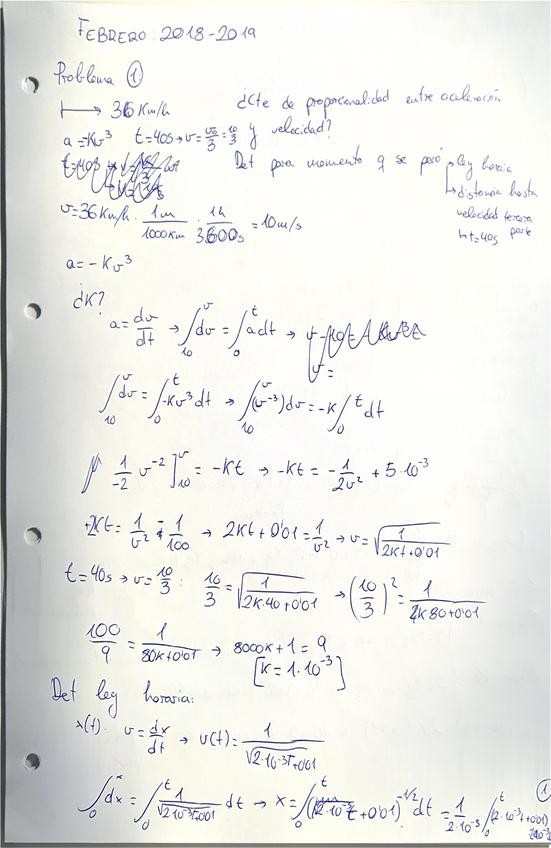 FEBRERO 2018-2019
Problema ①
|→ 36 Km/h ¿Cte de proporcionalidad entre aceleración
a = -Kv³ t=40s → v = v₀/3 = 10/3 y velocidad?
Det para momento q se paró → ley horaria
↳ distancia hasta
velocidad tercera
parte
↳ t=40s
v = 36 Km/h · 1m/1000Km · 1h/3600s = 10 m/s
a = -Kv³
¿K?
a = dv/dt → ∫₁₀ᵛ dv = ∫₀ᵗ a dt →
v =
∫₁₀ᵛ dv = ∫₀ᵗ -Kv³ dt → ∫₁₀ᵛ (v⁻³) dv = -K ∫₀ᵗ dt
1/-2 v⁻² ]₁₀ᵛ = -Kt → -Kt = -1/2v² + 5·10⁻³
+2Kt = 1/v² - 1/100 → 2Kt + 0'01 = 1/v² → v = √(1/(2Kt+0'01))
t=40s → v = 10/3 : 10/3 = √(1/(2K·40+0'01)) → (10/3)² = 1/(K·80+0'01)
100/9 = 1/(80K+0'01) → 8000K + 1 = 9
[K = 1·10⁻³]
Det ley horaria:
x(t): v = dx/dt → v(t) = 1/√(2·10⁻³t+0'01)
∫₀ˣ dx = ∫₀ᵗ 1/√(2·10⁻³t+0'01) dt → x = ∫₀ᵗ (2·10⁻³t+0'01)^(-1/2) dt = 1/(2·10⁻³) ∫₀ᵗ (2·10⁻³t+0'01)
①